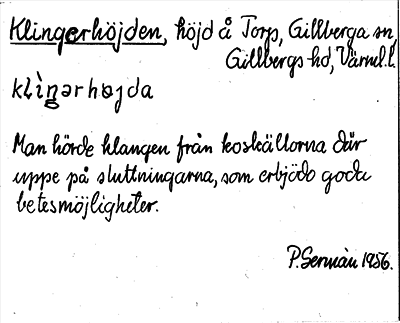 Klingerhöjden, höjd å Torp, Gillberga sn,
Gillbergs hd, Värml.l.
klìŋərhøjda
Man hörde klangen från koskällorna där
uppe på sluttningarna, som erbjödo goda
betesmöjligheter.
P. Sernäu 1956.